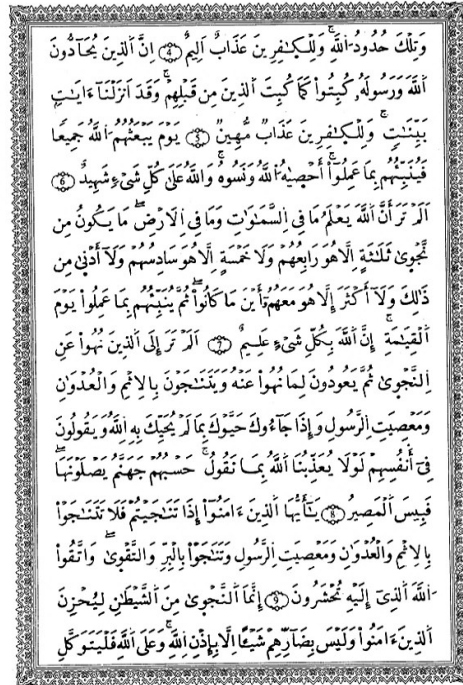 وَتِلْكَ حُدُودُ اُ۬للَّهِۖ وَلِلْكٰ۪فِرِينَ عَذَابٌ اَلِيمٌۖ 4 اِنَّ اَ۬لذِينَ يُحَآدُّونَ
اَ۬للَّهَ وَرَسُولَهُۥ كُبِتُواْ كَمَا كُبِتَ اَ۬لذِينَ مِن قَبْلِهِمْۖ وَقَدَ اَنزَلْنَآ ءَايَٰتِۢ
بَيِّنَٰتٖۖ وَلِلْكٰ۪فِرِينَ عَذَابٞ مُّهِينٞۖ 5 يَوْمَ يَبْعَثُهُمُ اُ۬للَّهُ جَمِيعاٗ
فَيُنَبِّئُهُم بِمَا عَمِلُوٓاْۖ أَحْص۪يٰهُ اُ۬للَّهُ وَنَسُوهُۖ وَاللَّهُ عَلَىٰ كُلِّ شَےْءٖ شَهِيدٌۖ 6
اَلَمْ تَرَ أَنَّ اَ۬للَّهَ يَعْلَمُ مَا فِے اِ۬لسَّمَٰوَٰتِ وَمَا فِے اِ۬لَارْضِۖ مَا يَكُونُ مِن
نَّجْو۪يٰ ثَلَٰثَةٍ اِلَّا هُوَ رَابِعُهُمْ وَلَا خَمْسَةٍ اِلَّا هُوَ سَادِسُهُمْ وَلَآ أَدْن۪يٰ مِن
ذَٰلِكَ وَلَآ أَكْثَرَ إِلَّا هُوَ مَعَهُمُۥٓ أَيْنَ مَا كَانُواْۖ ثُمَّ يُنَبِّئُهُم بِمَا عَمِلُواْ يَوْمَ
اَ۬لْقِيَٰمَةِۖ إِنَّ اَ۬للَّهَ بِكُلِّ شَےْءٍ عَلِيمٌۖ 7 اَلَمْ تَرَ إِلَى اَ۬لذِينَ نُهُواْ عَنِ
اِ۬لنَّجْو۪يٰ ثُمَّ يَعُودُونَ لِمَا نُهُواْ عَنْهُ وَيَتَنَٰجَوْنَ بِالِاثْمِ وَالْعُدْوَٰنِ
وَمَعْصِيَتِ اِ۬لرَّسُولِ وَإِذَا جَآءُوكَ حَيَّوْكَ بِمَا لَمْ يُحَيِّكَ بِهِ اِ۬للَّهُ وَيَقُولُونَ
فِےٓ أَنفُسِهِمْ لَوْلَا يُعَذِّبُنَا اَ۬للَّهُ بِمَا نَقُولُۖ حَسْبُهُمْ جَهَنَّمُ يَصْلَوْنَهَاۖ
فَبِيسَ اَ۬لْمَصِيرُۖ 8 يَٰٓأَيُّهَا اَ۬لذِينَ ءَامَنُوٓاْ إِذَا تَنَٰجَيْتُمْ فَلَا تَتَنَٰجَوْاْ
بِالِاثْمِ وَالْعُدْوَٰنِ وَمَعْصِيَتِ اِ۬لرَّسُولِ وَتَنَٰجَوْاْ بِالْبِرِّ وَالتَّقْو۪يٰۖ وَاتَّقُواْ
اُ۬للَّهَ اَ۬لذِےٓ إِلَيْهِ تُحْشَرُونَۖ 9 إِنَّمَا اَ۬لنَّجْو۪يٰ مِنَ اَ۬لشَّيْطَٰنِ لِيُحْزِنَ
اَ۬لذِينَ ءَامَنُواْ وَلَيْسَ بِضَآرِّهِمْ شَيْـٔاً اِلَّا بِإِذْنِ اِ۬للَّهِۖ وَعَلَى اَ۬للَّهِ فَلْيَتَوَكَّلِ